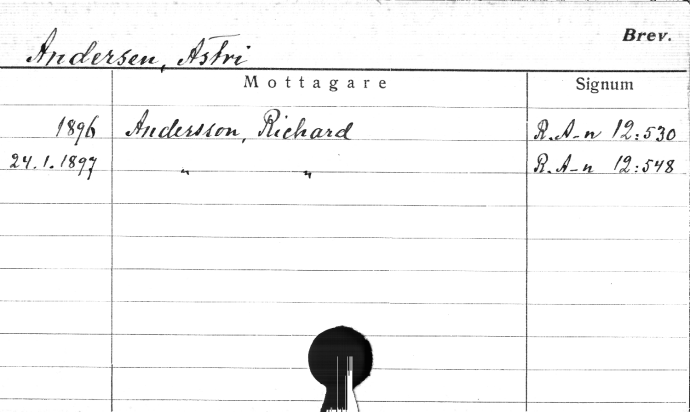 Brev.
Andersen, Astri
Mottagare Signum
1896 Andersson, Richard R. A-n 12:530
24.1.1897 " " R. A-n 12:548